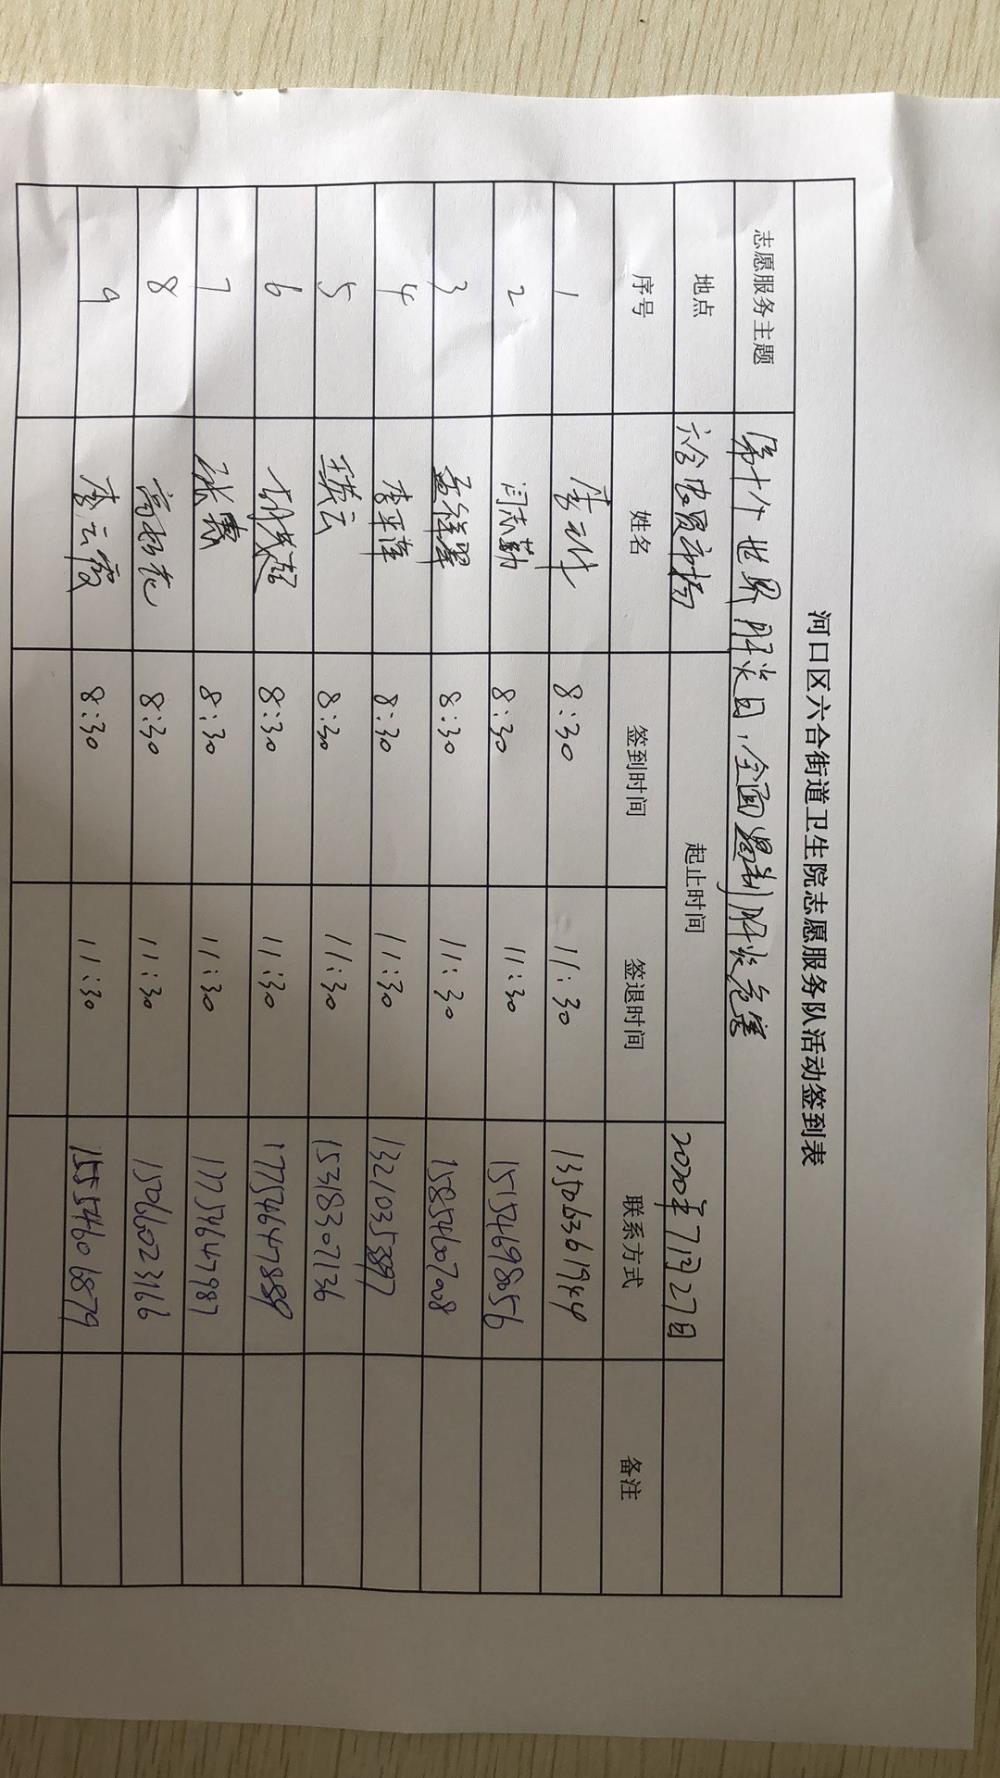 河口区六合街道卫生院志愿服务队活动签到表
志愿服务主题 第十个世界肝炎日，全面遏制肝炎危害
地点 六合农贸市场 起止时间 2020年7月27日
序号 姓名 签到时间 签退时间 联系方式 备注
1 8:30 11:30 13506361944
2 闫志勤 8:30 11:30 15154698056
3 8:30 11:30 15854607008
4 李平萍 8:30 11:30 13210353897
5 8:30 11:30 15318307136
6 8:30 11:30 17754647889
7 张霞 8:30 11:30 17754647987
8 高秋花 8:30 11:30 15066023166
9 李云霞 8:30 11:30 15554606879